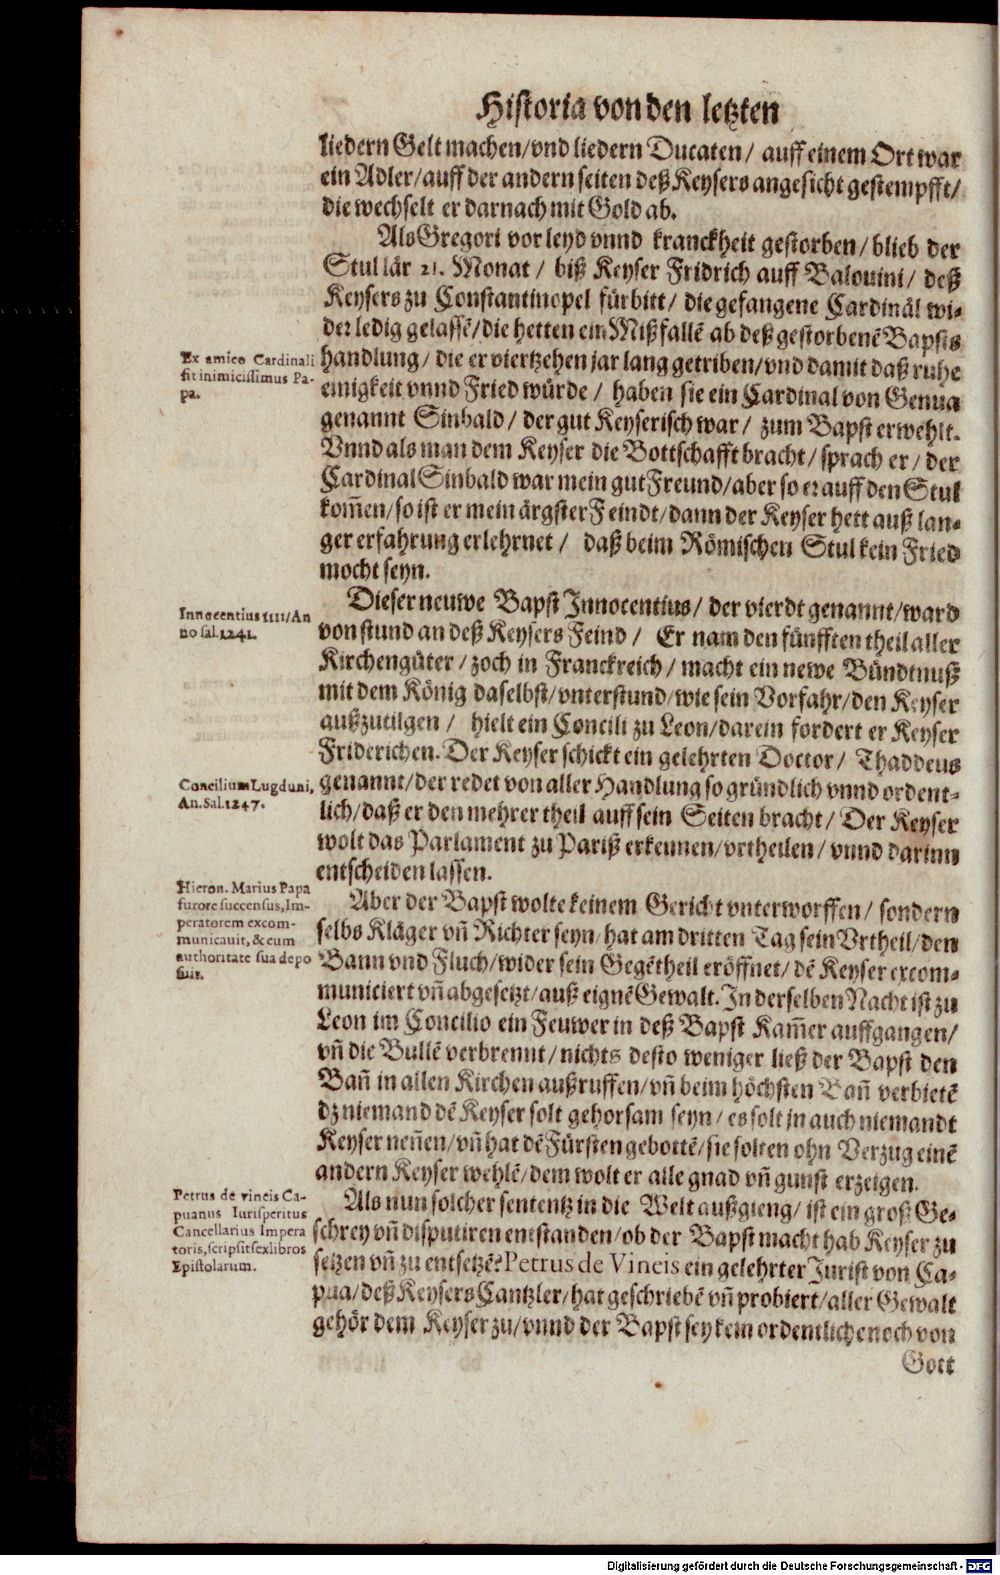 Historia von den letzten
liedern Gelt machen/vnd liedern Ducaten/ auff einem Ort war
ein Adler/auff der andern seiten deß Keysers angesicht gestempfft/
die wechselt er darnach mit Gold ab.
Als Gregori vor leyd vnnd kranckheit gestorben/blieb der
Stul lär 21. Monat/ biß Keyser Fridrich auff Balouini/ deß
Keysers zu Constantinopel fürbitt/ die gefangene Cardinäl wi-
der ledig gelassẽ/die hetten ein Mißfallẽ ab deß gestorbenẽ Bapsts
Ex amico Cardinali
fit inimicissimus Pa-
pa.
handlung/ die er viertzehen jar lang getriben/vnd damit daß ruhe
einigkeit vnnd Fried würde/ haben sie ein Cardinal von Genua
genannt Sinbald/ der gut Keyserisch war/ zum Bapst erwehlt.
Vnnd als man dem Keyser die Bottschafft bracht/sprach er/ der
Cardinal Sinbald war mein gut Freund/aber so er auff den Stul
kom̃en/so ist er mein ärgster Feindt/dann der Keyser hett auß lan-
ger erfahrung erlehrnet/ daß beim Römischen Stul kein Fried
mocht seyn.
Innocentius IIII/An
no sal. 1241.
Dieser neuwe Bapst Innocentius/ der vierdt genannt/ward
von stund an deß Keysers Feind/ Er nam den fünfften theil aller
Kirchengüter/zoch in Franckreich/ macht ein newe Bündtnuß
mit dem König daselbst/vnterstund/wie sein Vorfahr/den Keyser
außzutilgen/ hielt ein Concili zu Leon/darein fordert er Keyser
Friderichen. Der Keyser schickt ein gelehrten Doctor/ Thaddeus
Concilium Lugduni,
An. Sal. 1247.
genannt/der redet von aller Handlung so gründlich vnnd ordent-
lich/daß er den mehrer theil auff sein Seiten bracht/ Der Keyser
wolt das Parlament zu Pariß erkennen/vrtheilen/vnnd darinn
entscheiden lassen.
Hieron. Marius Papa
furore succensus, Im-
peratorem excom-
municauit, & eum
authoritate sua depo
suit.
Aber der Bapst wolte keinem Gericht vnterworffen/ sondern
selbs Kläger vñ Richter seyn/hat am dritten Tag sein Vrtheil/den
Bann vnd Fluch/wider sein Gegẽtheil eröffnet/dẽ Keyser excom-
municiert vñ abgesetzt/auß eignẽ Gewalt. In derselben Nacht ist zu
Leon im Concilio ein Feuwer in deß Bapst Kam̃er auffgangen/
vñ die Bullẽ verbrennt/nichts desto weniger ließ der Bapst den
Bañ in allen Kirchen außruffen/vñ beim höchsten Bañ verbietẽ
dz niemand dẽ Keyser solt gehorsam seyn/es solt jn auch niemandt
Keyser neñen/vñ hat dẽ Fürsten gebottẽ/sie solten ohn Verzug einẽ
andern Keyser wehlẽ/dem wolt er alle gnad vñ gunst erzeigen.
Petrus de vineis Ca-
puanus Iurisperitus
Cancellarius Impera
toris, scripsit sex libros
Epistolarum.
Als nun solcher sententz in die Welt außgieng/ ist ein groß Ge-
schrey vñ disputiren entstanden/ob der Bapst macht hab Keyser zu
setzen vñ zu entsetzẽ? Petrus de Vineis ein gelehrter Jurist von Ca-
pua/deß Keysers Cantzler/hat geschriebẽ vñ probiert/aller Gewalt
gehör dem Keyser zu/vnnd der Bapst sey kein ordentliche noch von
Gott
Digitalisierung gefördert durch die Deutsche Forschungsgemeinschaft - DFG